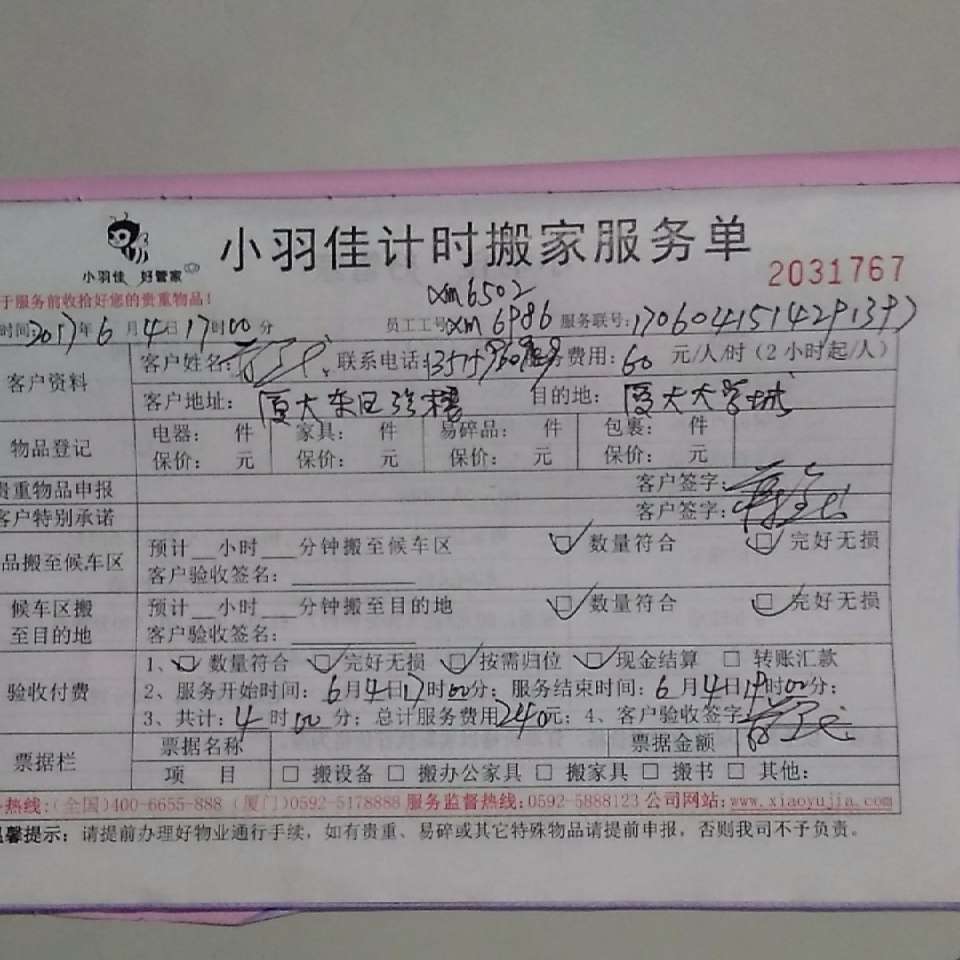 小羽佳计时搬家服务单
小羽佳 好管家
2031767
于服务前收拾好您的贵重物品！
xm6502
时间:2017年6月4日17时00分 员工工号:xm6986 服务联号:
客户资料 客户姓名: 联系电话: 服务费用:60 元/人/时（2小时起/人）
客户地址: 厦大东区 目的地: 厦大大学城
物品登记 电器: 件 家具: 件 易碎品: 件 包裹: 件
保价: 元 保价: 元 保价: 元 保价: 元
贵重物品申报 客户签字:
客户特别承诺 客户签字:
品搬至候车区 预计__小时___分钟搬至候车区 □数量符合 □完好无损
客户验收签名:
候车区搬至目的地 预计__小时___分钟搬至目的地 □数量符合 □完好无损
客户验收签名:
验收付费 1、□数量符合 □完好无损 □按需归位 □现金结算 □ 转账汇款
2、服务开始时间: 6月4日17时00分; 服务结束时间: 6月4日时00分;
3、共计: 4时00分; 总计服务费用240元; 4、客户验收签字
票据栏 票据名称 票据金额
项 目 □ 搬设备 □ 搬办公家具 □ 搬家具 □ 搬书 □ 其他:
热线:(全国)400-6655-888 (厦门)0592-5178888 服务监督热线:0592-5888123 公司网站:www.xiaoyujia.com
温馨提示: 请提前办理好物业通行手续，如有贵重、易碎或其它特殊物品请提前申报，否则我司不予负责。